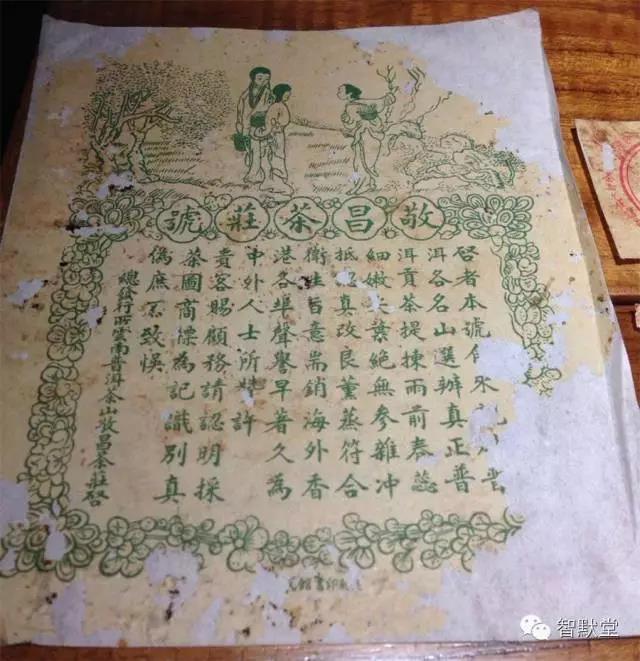 敬昌茶莊號
啓者本號來雲
洱各名山選辦真正普
洱貢茶提揀雨前春蕊
細嫩尖葉絕無參雜冲
抵真改良薰蒸符合
衛生旨意耑銷海外香
港各埠聲譽早著久為
中外人士所許
貴客賜顧務請認明採
茶圖商標為記識別真
偽庶不致悞
總發行所雲南普洱茶山敬昌茶莊啓
印書館
智默堂